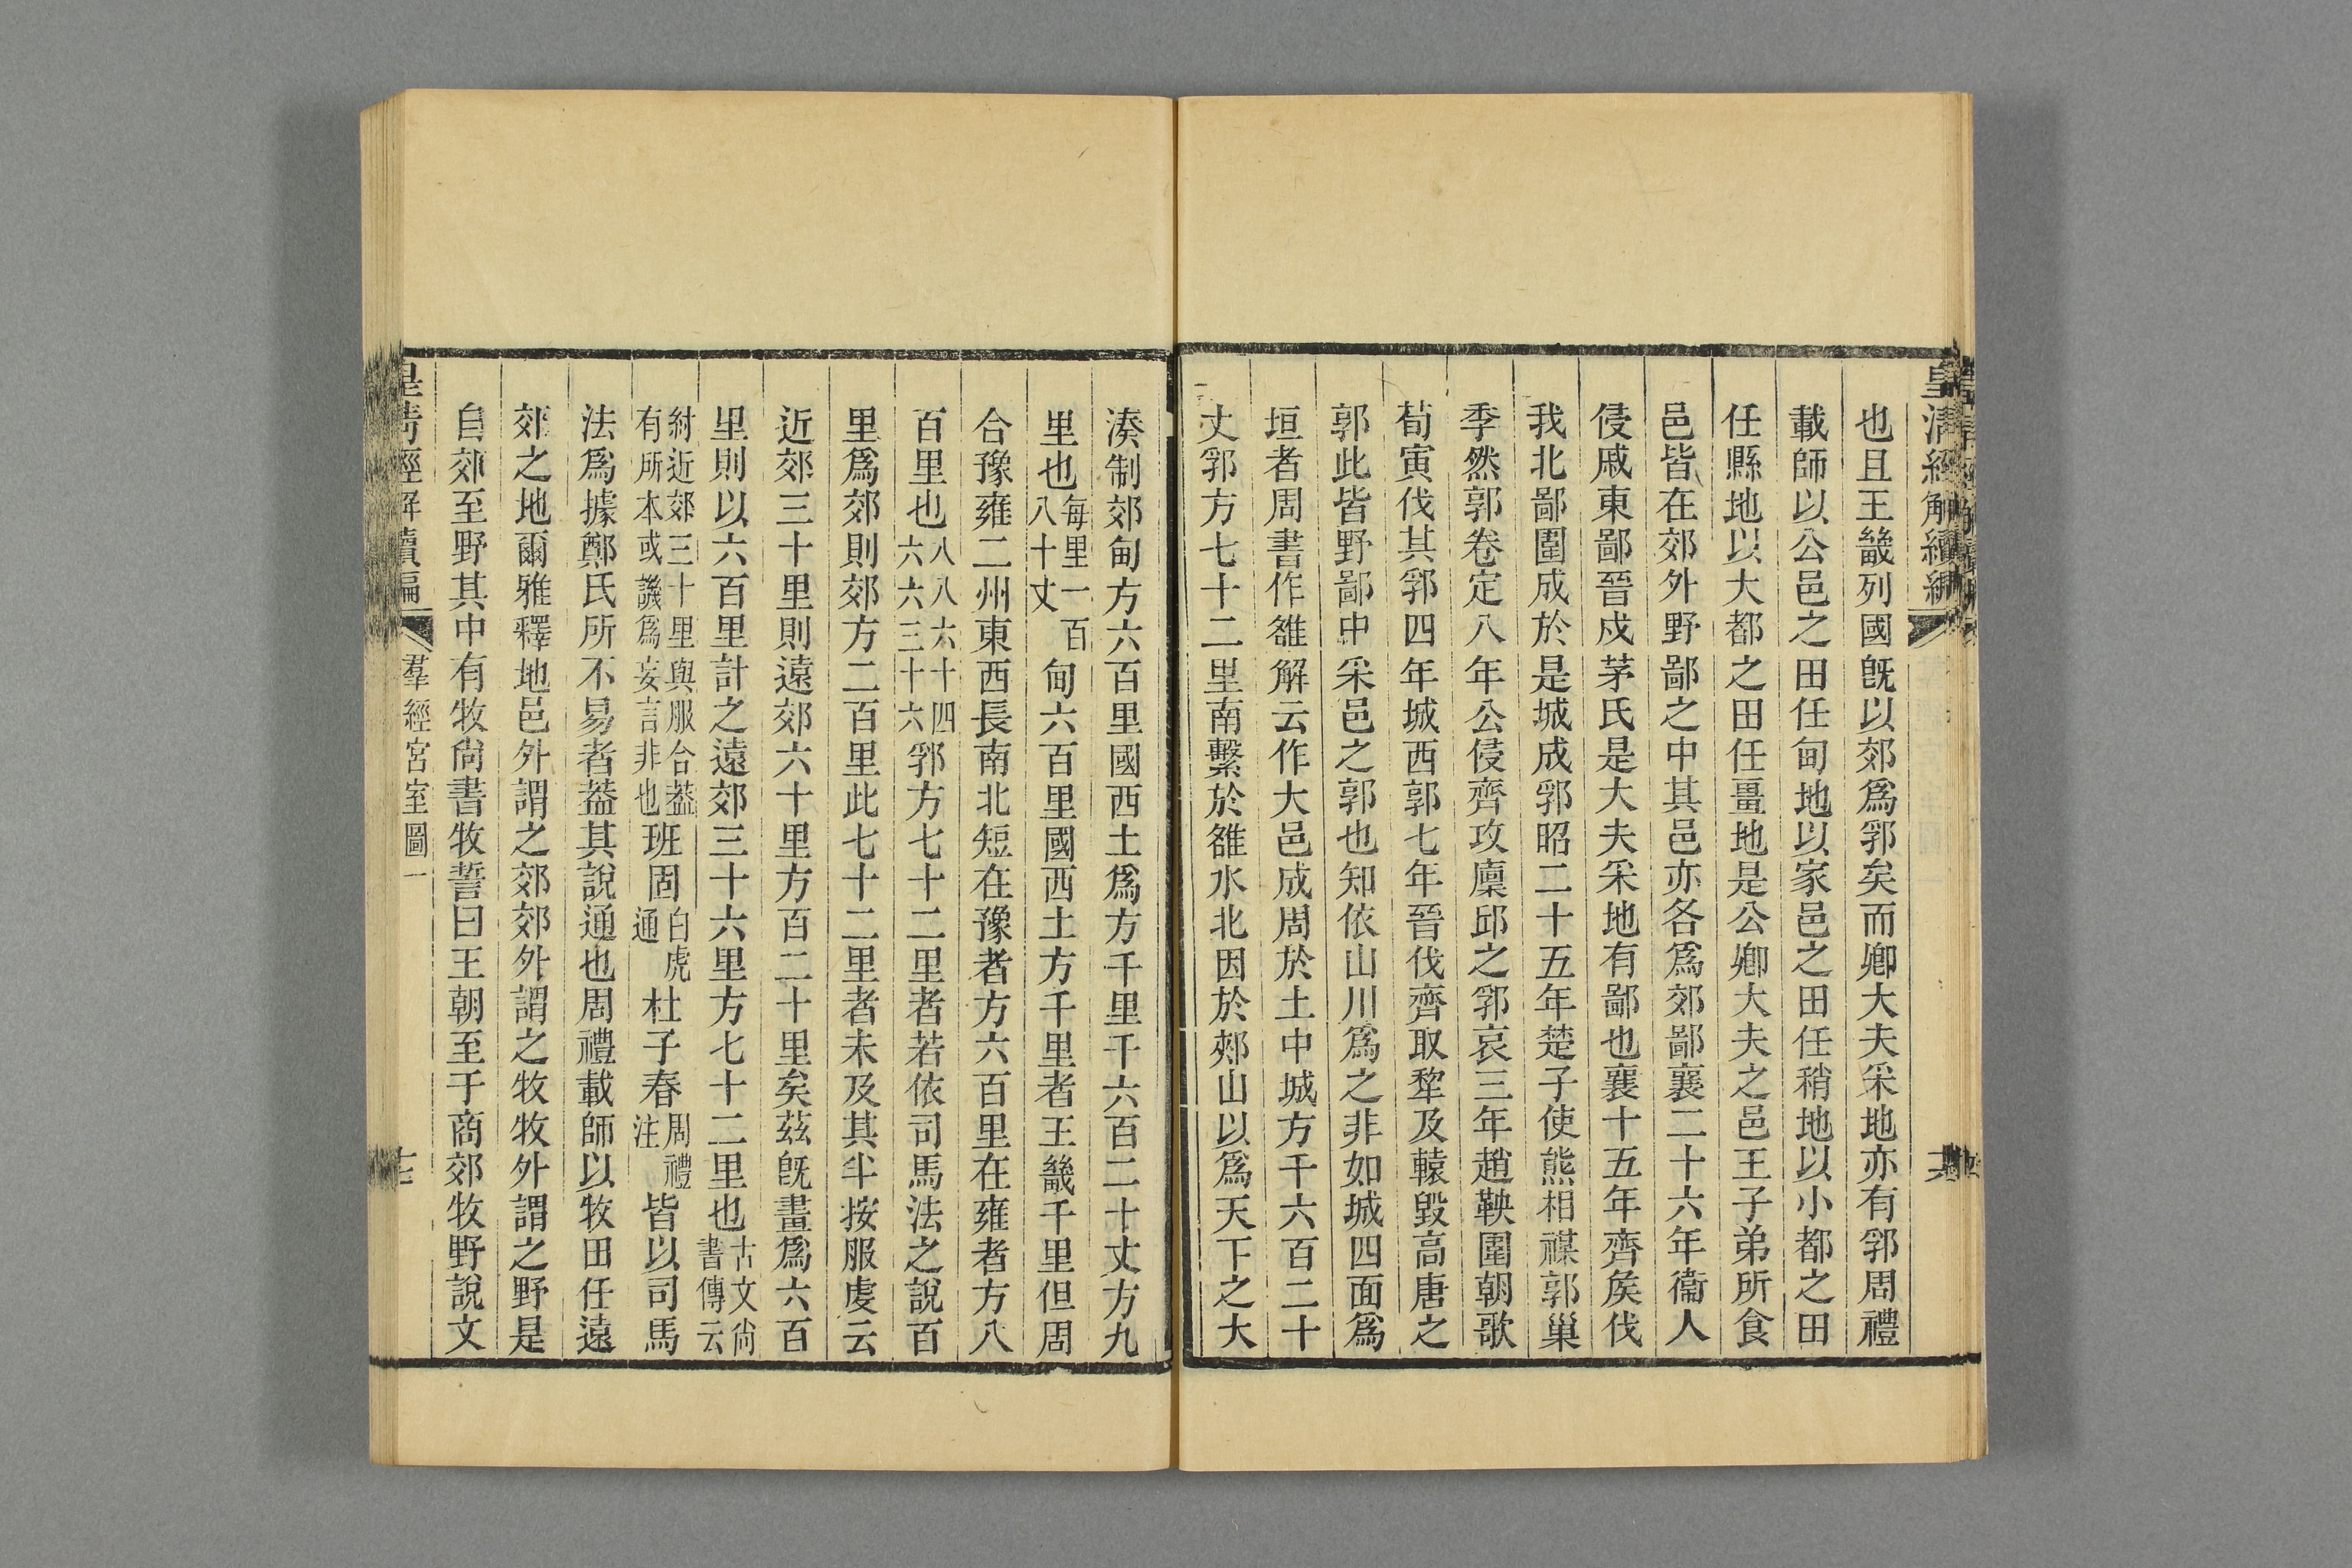 皇清經解續編
也且王畿列國旣以郊爲郛矣而卿大夫采地亦有郛周禮
載師以公邑之田任甸地以家邑之田任稍地以小都之田
任縣地以大都之田任畺地是公卿大夫之邑王子弟所食
邑皆在郊外野鄙之中其邑亦各爲郊鄙襄二十六年衞人
侵戚東鄙晉戍茅氏是大夫采地有鄙也襄十五年齊矦伐
我北鄙圍成於是城成郛昭二十五年楚子使熊相禖郭巢
季然郭卷定八年公侵齊攻廩邱之郛哀三年趙鞅圍朝歌
荀寅伐其郛四年城西郭七年晉伐齊取犂及轅毀高唐之
郭此皆野鄙中采邑之郭也知依山川爲之非如城四面爲
垣者周書作雒解云作大邑成周於土中城方千六百二十
丈郛方七十二里南繫於雒水北因於郟山以爲天下之大
湊制郊甸方六百里國西土爲方千里千六百二十丈方九
里也每里一百八十丈甸六百里國西土方千里者王畿千里但周
合豫雍二州東西長南北短在豫者方六百里在雍者方八
百里也八八六十四六六三十六郛方七十二里者若依司馬法之說百
里爲郊則郊方二百里此七十二里者未及其半按服虔云
近郊三十里則遠郊六十里方百二十里矣茲旣畫爲六百
里則以六百里計之遠郊三十六里方七十二里也古文尙書傳云
紂近郊三十里與服合葢有所本或譏爲妄言非也班固白虎通杜子春周禮注皆以司馬
法爲據鄭氏所不易者葢其說通也周禮載師以牧田任遠
郊之地爾雅釋地邑外謂之郊郊外謂之牧牧外謂之野是
自郊至野其中有牧尙書牧誓曰王朝至于商郊牧野說文
皇淸經解續編
羣經宮室圖一